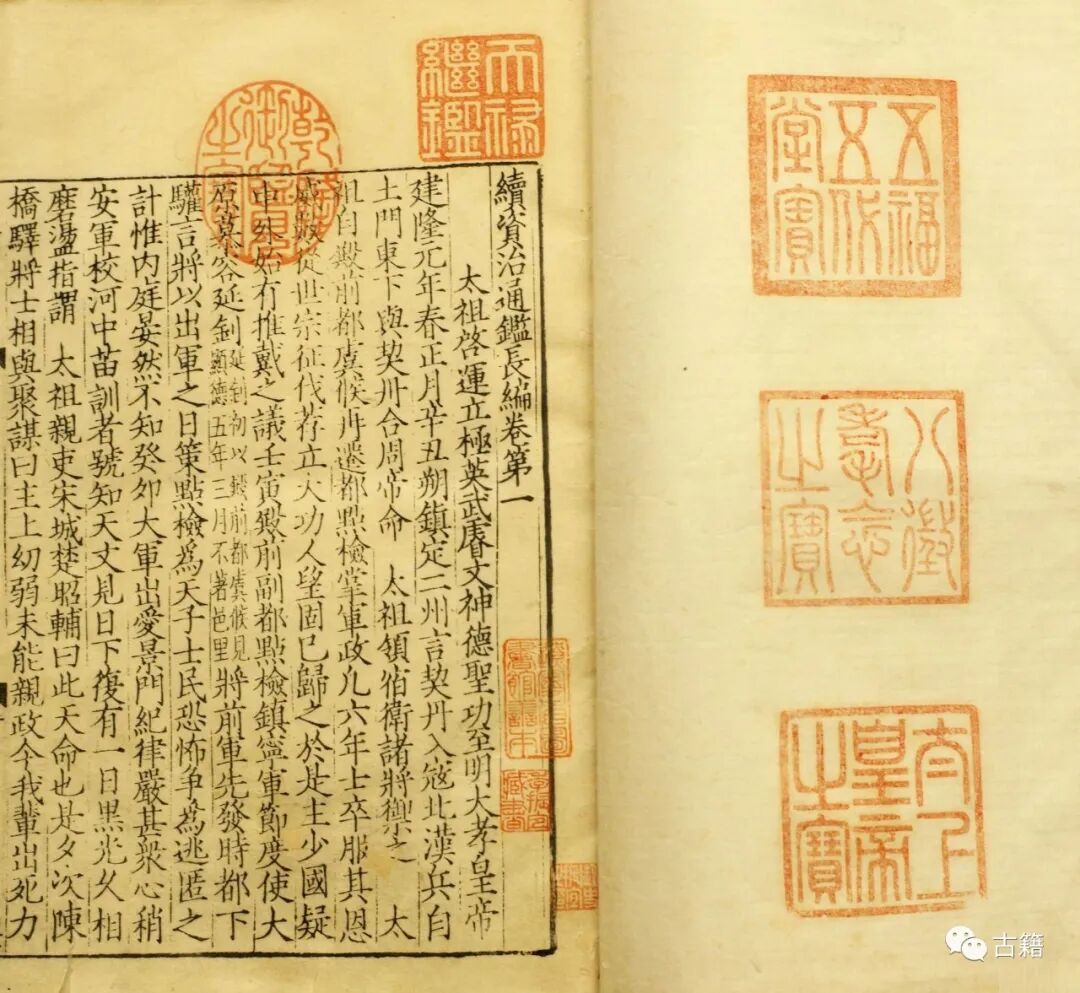 五福五代堂寶
八徵耄念之寶
太上皇帝之寶
天祿繼鑑
乾隆御覽之寶
續資治通鑑長編卷第一
太祖啓運立極英武睿文神德聖功至明大孝皇帝
建隆元年春正月辛丑朔鎮定二州言契丹入寇北漢兵自
土門東下與契丹合周帝命 太祖領宿衛諸將禦之 太
祖自殿前都虞候再遷都點檢掌軍政凡六年士卒服其恩
威數從世宗征伐荐立大功人望固已歸之於是主少國疑
中外始有推戴之議壬寅殿前副都點檢鎮寧軍節度使大
原慕容延釗延釗初以殿前都虞候見顯德五年三月不著邑里將前軍先發時都下
驩言將以出軍之日策點檢為天子士民恐怖爭為逃匿之
計惟內庭晏然不知癸卯大軍出愛景門紀律嚴甚衆心稍
安軍校河中苗訓者號知天文見日下復有一日黑光久相
磨盪指謂 太祖親吏宋城楚昭輔曰此天命也是夕次陳
橋驛將士相與聚謀曰主上幼弱未能親政今我輩出死力
古籍